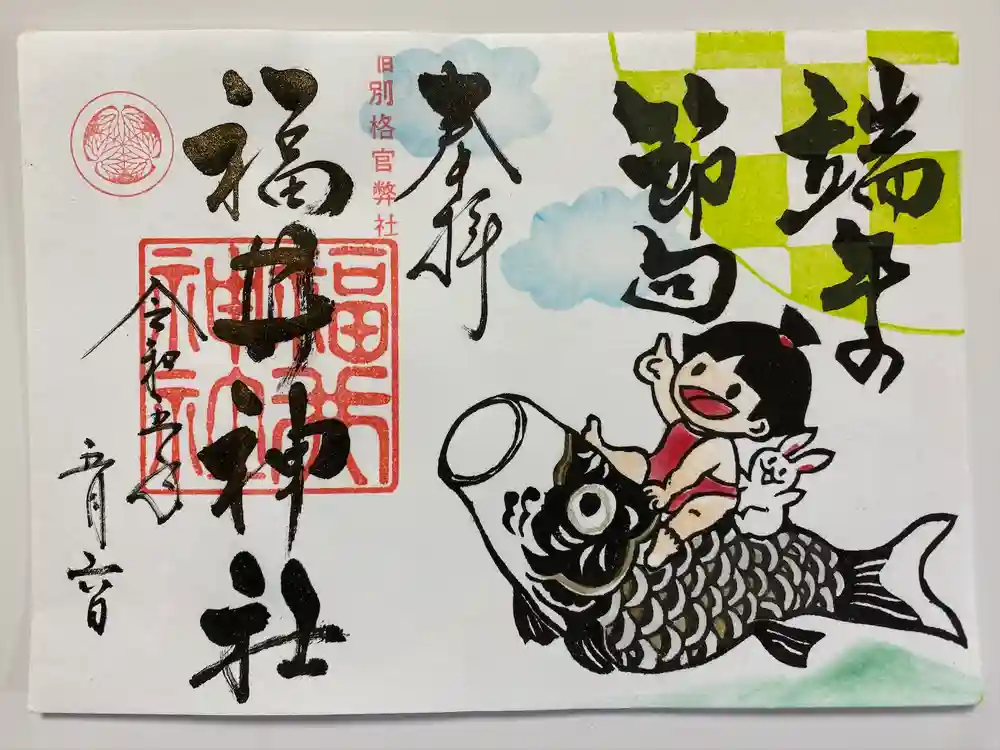 端午の
節句
奉拝
旧別格官幣社
福井神社
福井神社
令和五年
五月六日